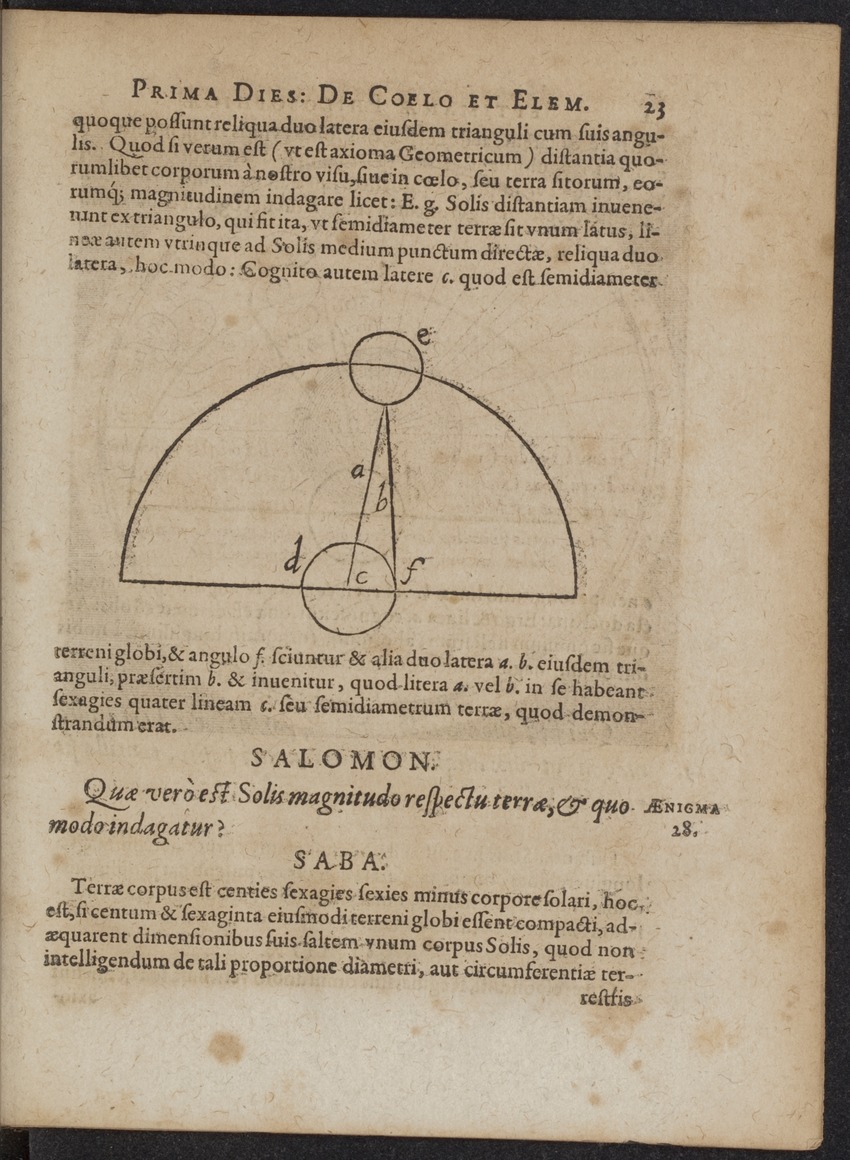 PRIMA DIES: DE COELO ET ELEM. 23
quoque possunt reliqua duo latera eiusdem trianguli cum suis angu-
lis. Quod si verum est (vt est axioma Geometricum) distantia quo-
rumlibet corporum à nostro visu, siue in cœlo, seu terra sitorum, eo-
rumq́; magnitudinem indagare licet: E. g. Solis distantiam inuene-
runt ex triangulo, qui fit ita, vt semidiameter terræ sit vnum latus, li-
neæ autem vtrinque ad Solis medium punctum directæ, reliqua duo
latera, hoc modo: Cognito autem latere c. quod est semidiameter
e
a
b
d
c
f
terreni globi, & angulo f. sciuntur & alia duo latera a. b. eiusdem tri-
anguli, præsertim b. & inuenitur, quod litera a. vel b. in se habeant
sexagies quater lineam c. seu semidiametrum terræ, quod demon-
strandum erat.
SALOMON.
Quæ verò est Solis magnitudo respectu terræ, & quo
modo indagatur?
ÆNIGMA
28.
SABA.
Terræ corpus est centies sexagies sexies minus corpore solari, hoc
est, si centum & sexaginta eiusmodi terreni globi essent compacti, ad-
æquarent dimensionibus suis saltem vnum corpus Solis, quod non
intelligendum de tali proportione diametri, aut circumferentiæ ter-
restris